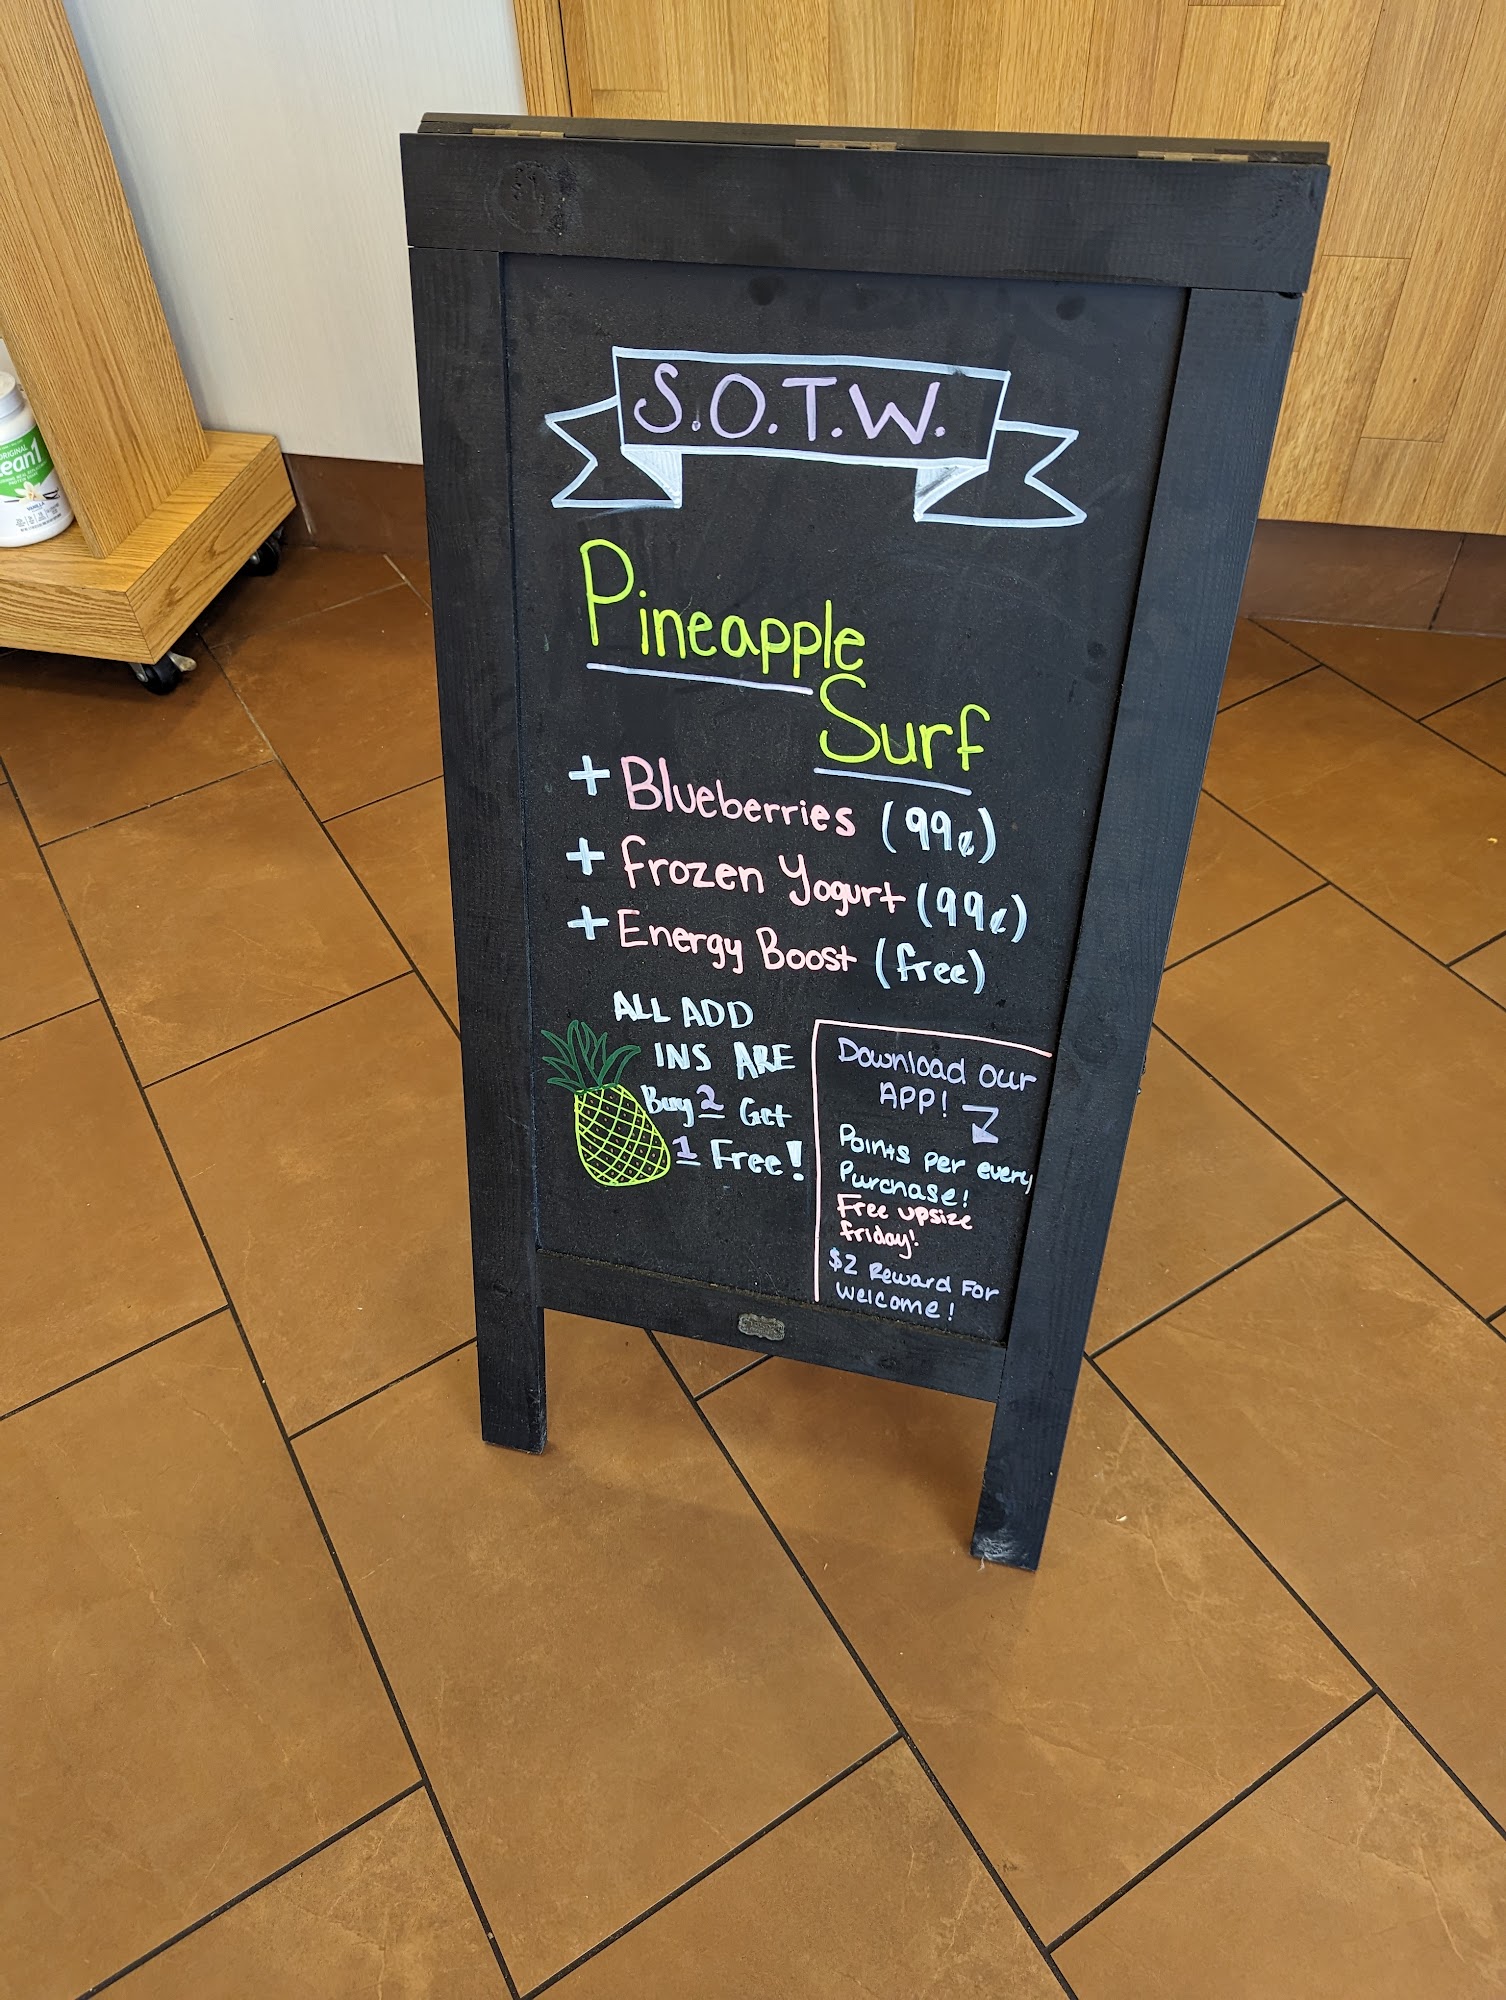 S.O.T.W.
Pineapple
Surf
+ Blueberries (99¢)
+ Frozen Yogurt (99¢)
+ Energy Boost (free)
ALL ADD
INS ARE
Buy 2 Get
1 Free!
Download our
APP!
Points per every
Purchase!
Free upsize
friday!
$2 Reward For
welcome!
ORIGINAL
lean1
VANILLA